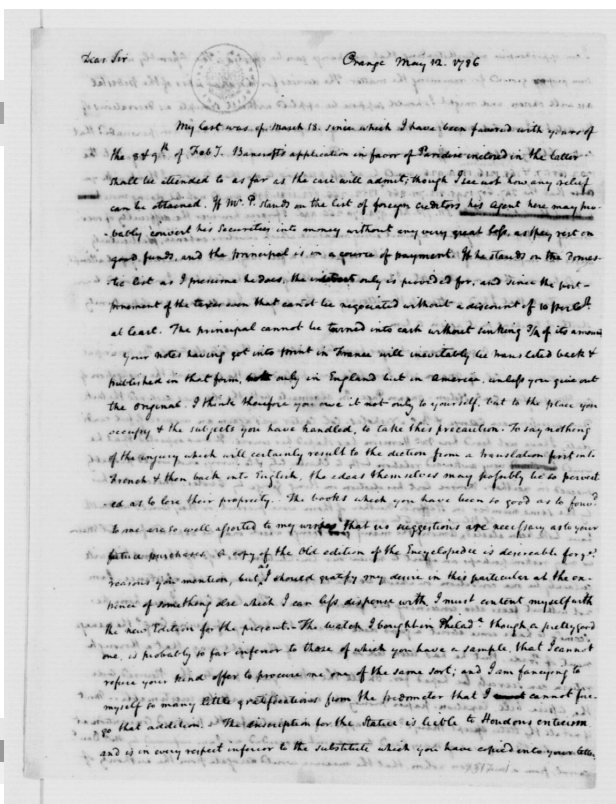 Dear Sir
Orange May 12. 1786
My last was of March 18. since which I have been favored with yours of
the 8 & 9th of Feby. Bancroft's application in favor of Paradise inclosed in the latter
shall be attended to as far as the case will admit, though I see not how any relief
can be obtained. If Mr. P. stands on the list of foreign creditors his agent here may pro-
bably convert his securities into money without any very great loss, as they rest on
good funds, and the principal is in a course of payment. If he stands on the domes-
tic list as I presume he does, the interest only is provided for, and since the post-
ponement of the taxes even that cannot be negotiated without a discount of 10 per Ct.
at least. The principal cannot be turned into cash without sinking 3/4 of its amount
Your notes having got into print in France will inevitably be translated back &
published in that form, not only in England but in America, unless you give out
the original. I think therefore you owe it not only to yourself, but to the place you
occupy & the subjects you have handled, to take this precaution. To say nothing
of the injury which will certainly result to the diction from a translation first into
French & then back into English, the ideas themselves may possibly be so pervert
ed as to lose their propriety. The books which you have been so good as to forwd.
to me are so well assorted to my wishes that no suggestions are necessary as to your
future purchases. A copy of the Old edition of the Encyclopedie is desireable for ye.
reasons you mention, but as I should gratify my desire in this particular at the ex-
pence of something else which I can less dispense with, I must content myself with
the new Edition for the present. The watch I bought in Philada. though a pretty good
one, is probably so far inferior to those of which you have a sample, that I cannot
refuse your kind offer to procure me one of the same sort; and I am fancying to
myself so many little gratifications from the pedometer that I cannot fore-
go that addition. The inscription for the Statue is liable to Houdons criticism
and is in every respect inferior to the substitute which you have copied into your letter.